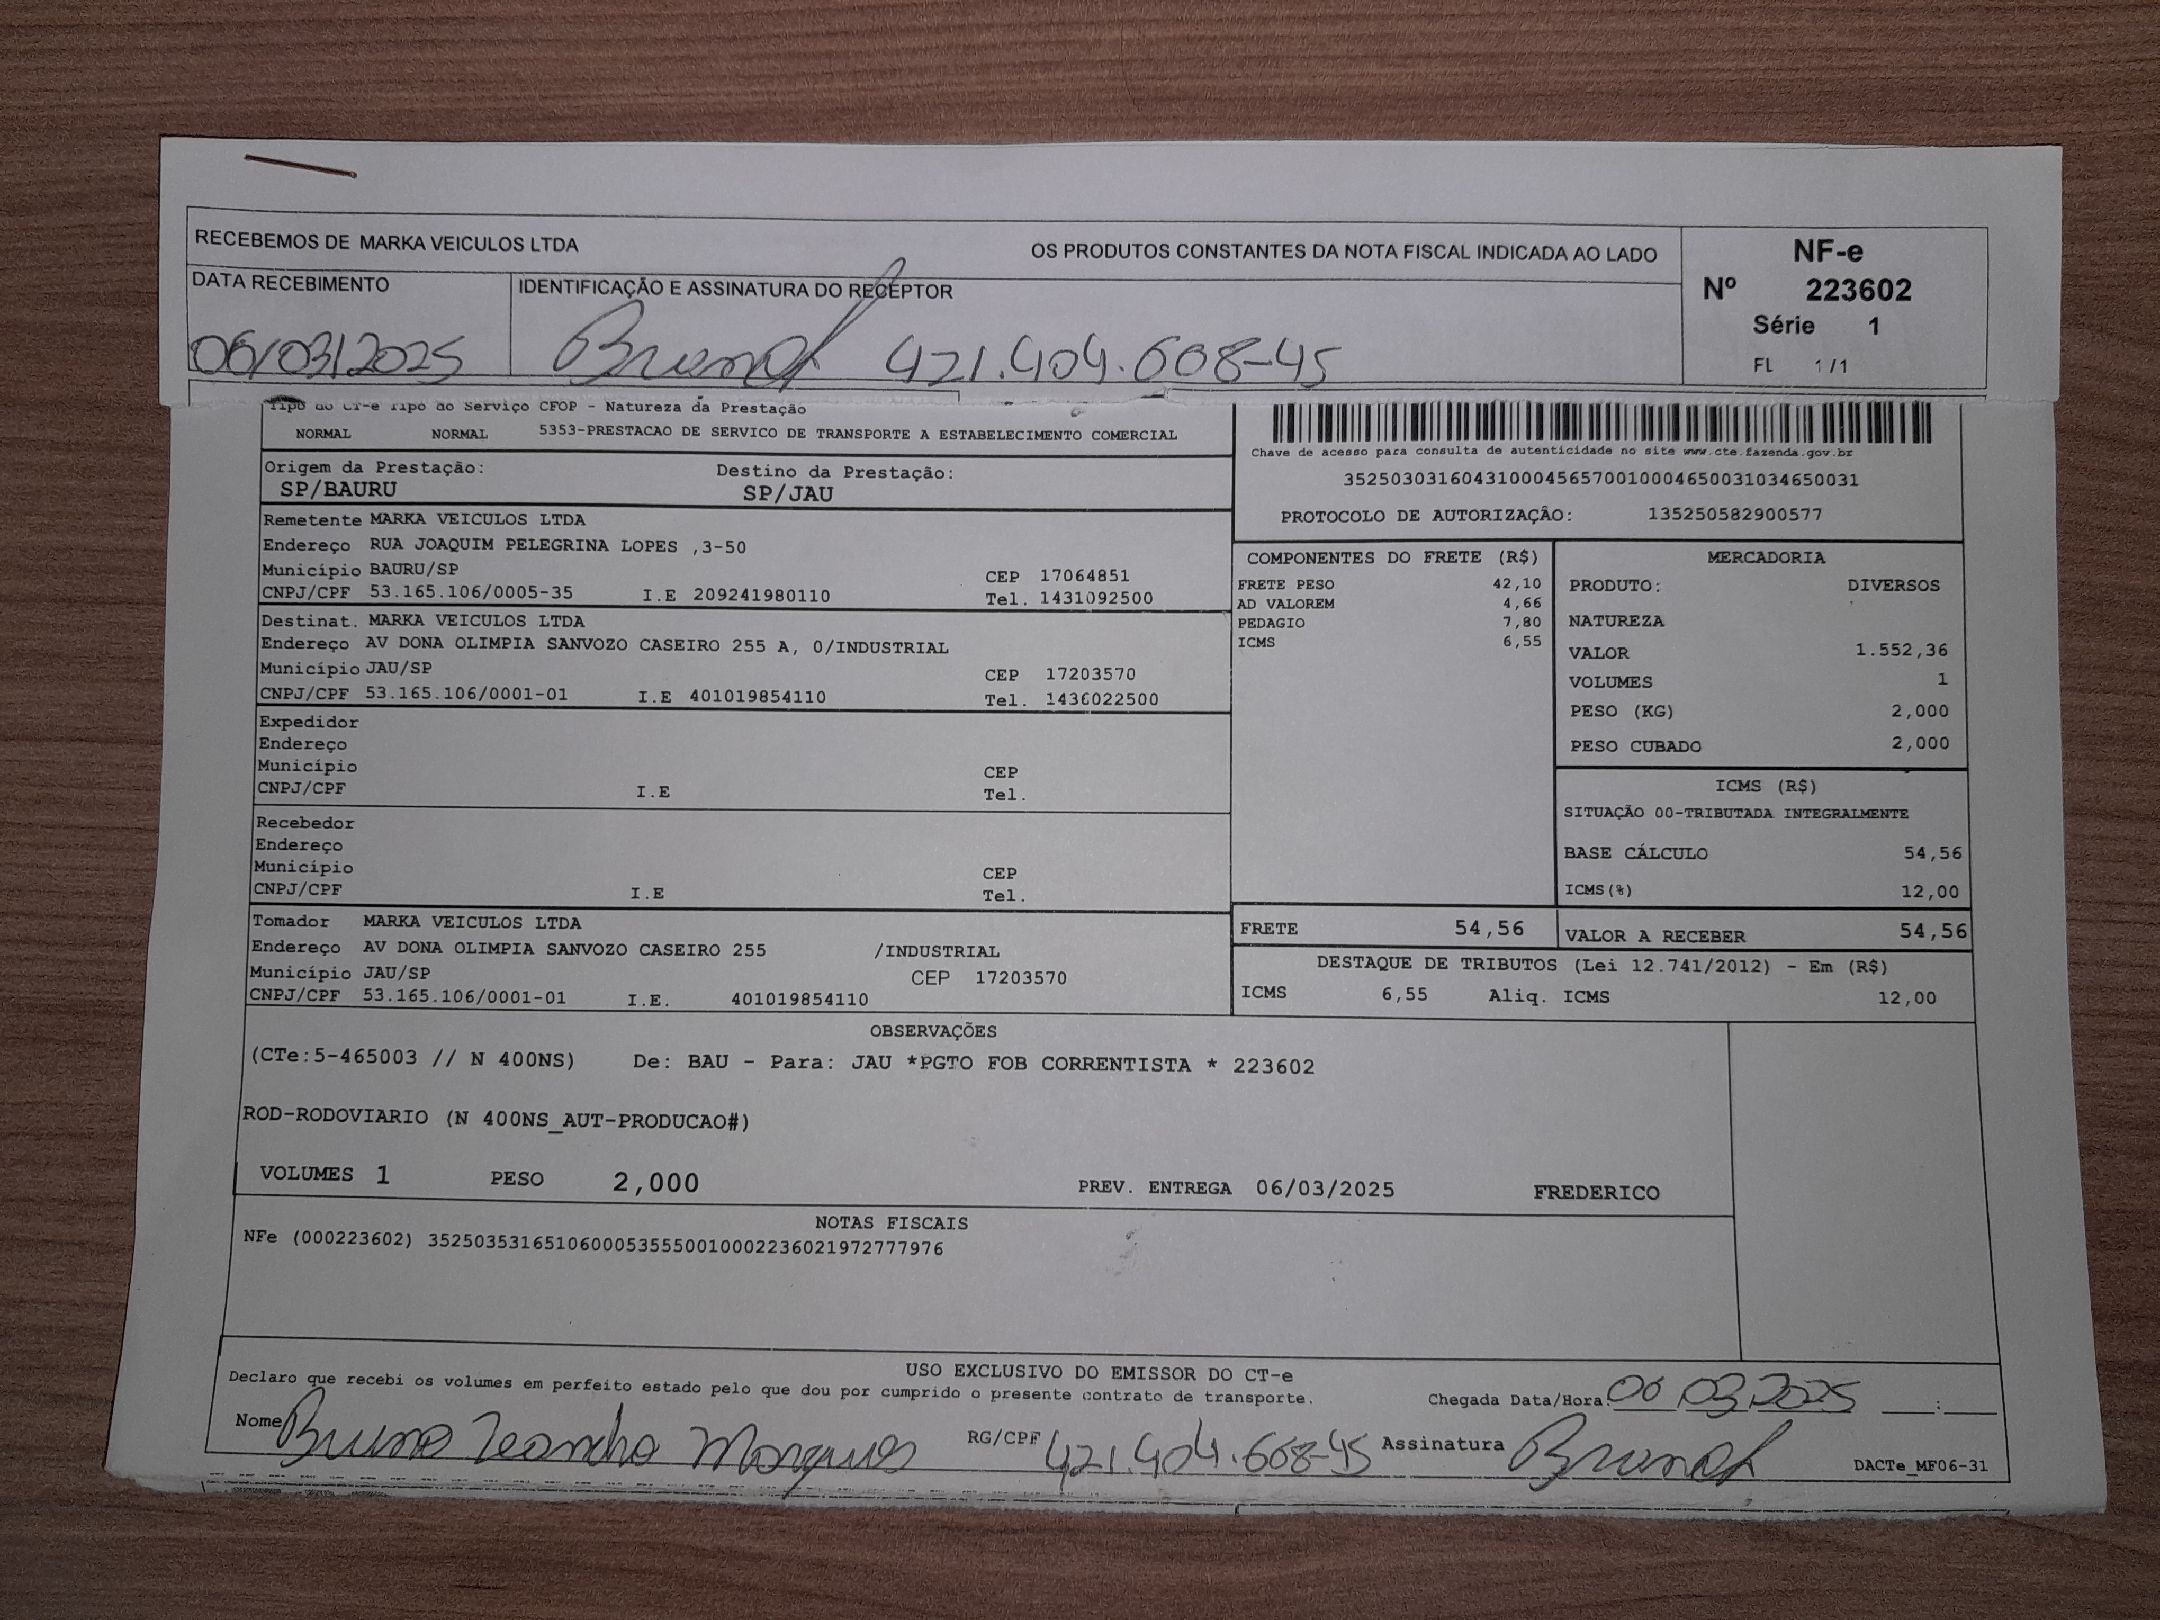 RECEBEMOS DE MARKA VEICULOS LTDA OS PRODUTOS CONSTANTES DA NOTA FISCAL INDICADA AO LADO
NF-e
Nº 223602
Série 1
FL 1/1
DATA RECEBIMENTO
IDENTIFICAÇÃO E ASSINATURA DO RECEPTOR
06/03/2025
421.404.608-45
Tipo do CT-e Tipo do Serviço CFOP - Natureza da Prestação
NORMAL NORMAL 5353-PRESTACAO DE SERVICO DE TRANSPORTE A ESTABELECIMENTO COMERCIAL
Chave de acesso para consulta de autenticidade no site www.cte.fazenda.gov.br
35250303160431000456570010004650031034650031
PROTOCOLO DE AUTORIZAÇÃO: 135250582900577
Origem da Prestação: Destino da Prestação:
SP/BAURU SP/JAU
Remetente MARKA VEICULOS LTDA
Endereço RUA JOAQUIM PELEGRINA LOPES ,3-50
Município BAURU/SP CEP 17064851
CNPJ/CPF 53.165.106/0005-35 I.E 209241980110 Tel. 1431092500
Destinat. MARKA VEICULOS LTDA
Endereço AV DONA OLIMPIA SANVOZO CASEIRO 255 A, 0/INDUSTRIAL
Município JAU/SP CEP 17203570
CNPJ/CPF 53.165.106/0001-01 I.E 401019854110 Tel. 1436022500
Expedidor
Endereço
Município CEP
CNPJ/CPF I.E Tel.
Recebedor
Endereço
Município CEP
CNPJ/CPF I.E Tel.
Tomador MARKA VEICULOS LTDA
Endereço AV DONA OLIMPIA SANVOZO CASEIRO 255 /INDUSTRIAL
Município JAU/SP CEP 17203570
CNPJ/CPF 53.165.106/0001-01 I.E. 401019854110
COMPONENTES DO FRETE (R$)
FRETE PESO 42,10
AD VALOREM 4,66
PEDAGIO 7,80
ICMS 6,55
MERCADORIA
PRODUTO: DIVERSOS
NATUREZA
VALOR 1.552,36
VOLUMES 1
PESO (KG) 2,000
PESO CUBADO 2,000
ICMS (R$)
SITUAÇÃO 00-TRIBUTADA INTEGRALMENTE
BASE CÁLCULO 54,56
ICMS(%) 12,00
FRETE 54,56 VALOR A RECEBER 54,56
DESTAQUE DE TRIBUTOS (Lei 12.741/2012) - Em (R$)
ICMS 6,55 Aliq. ICMS 12,00
OBSERVAÇÕES
(CTe:5-465003 // N 400NS) De: BAU - Para: JAU *PGTO FOB CORRENTISTA * 223602
ROD-RODOVIARIO (N 400NS_AUT-PRODUCAO#)
VOLUMES 1 PESO 2,000 PREV. ENTREGA 06/03/2025 FREDERICO
NOTAS FISCAIS
NFe (000223602) 35250353165106000535550010002236021972777976
USO EXCLUSIVO DO EMISSOR DO CT-e
Declaro que recebi os volumes em perfeito estado pelo que dou por cumprido o presente contrato de transporte.
Chegada Data/Hora: 06 03 2025 :
Nome Bruno Leandro Marques RG/CPF 421.404.608-45 Assinatura
DACTe_MF06-31